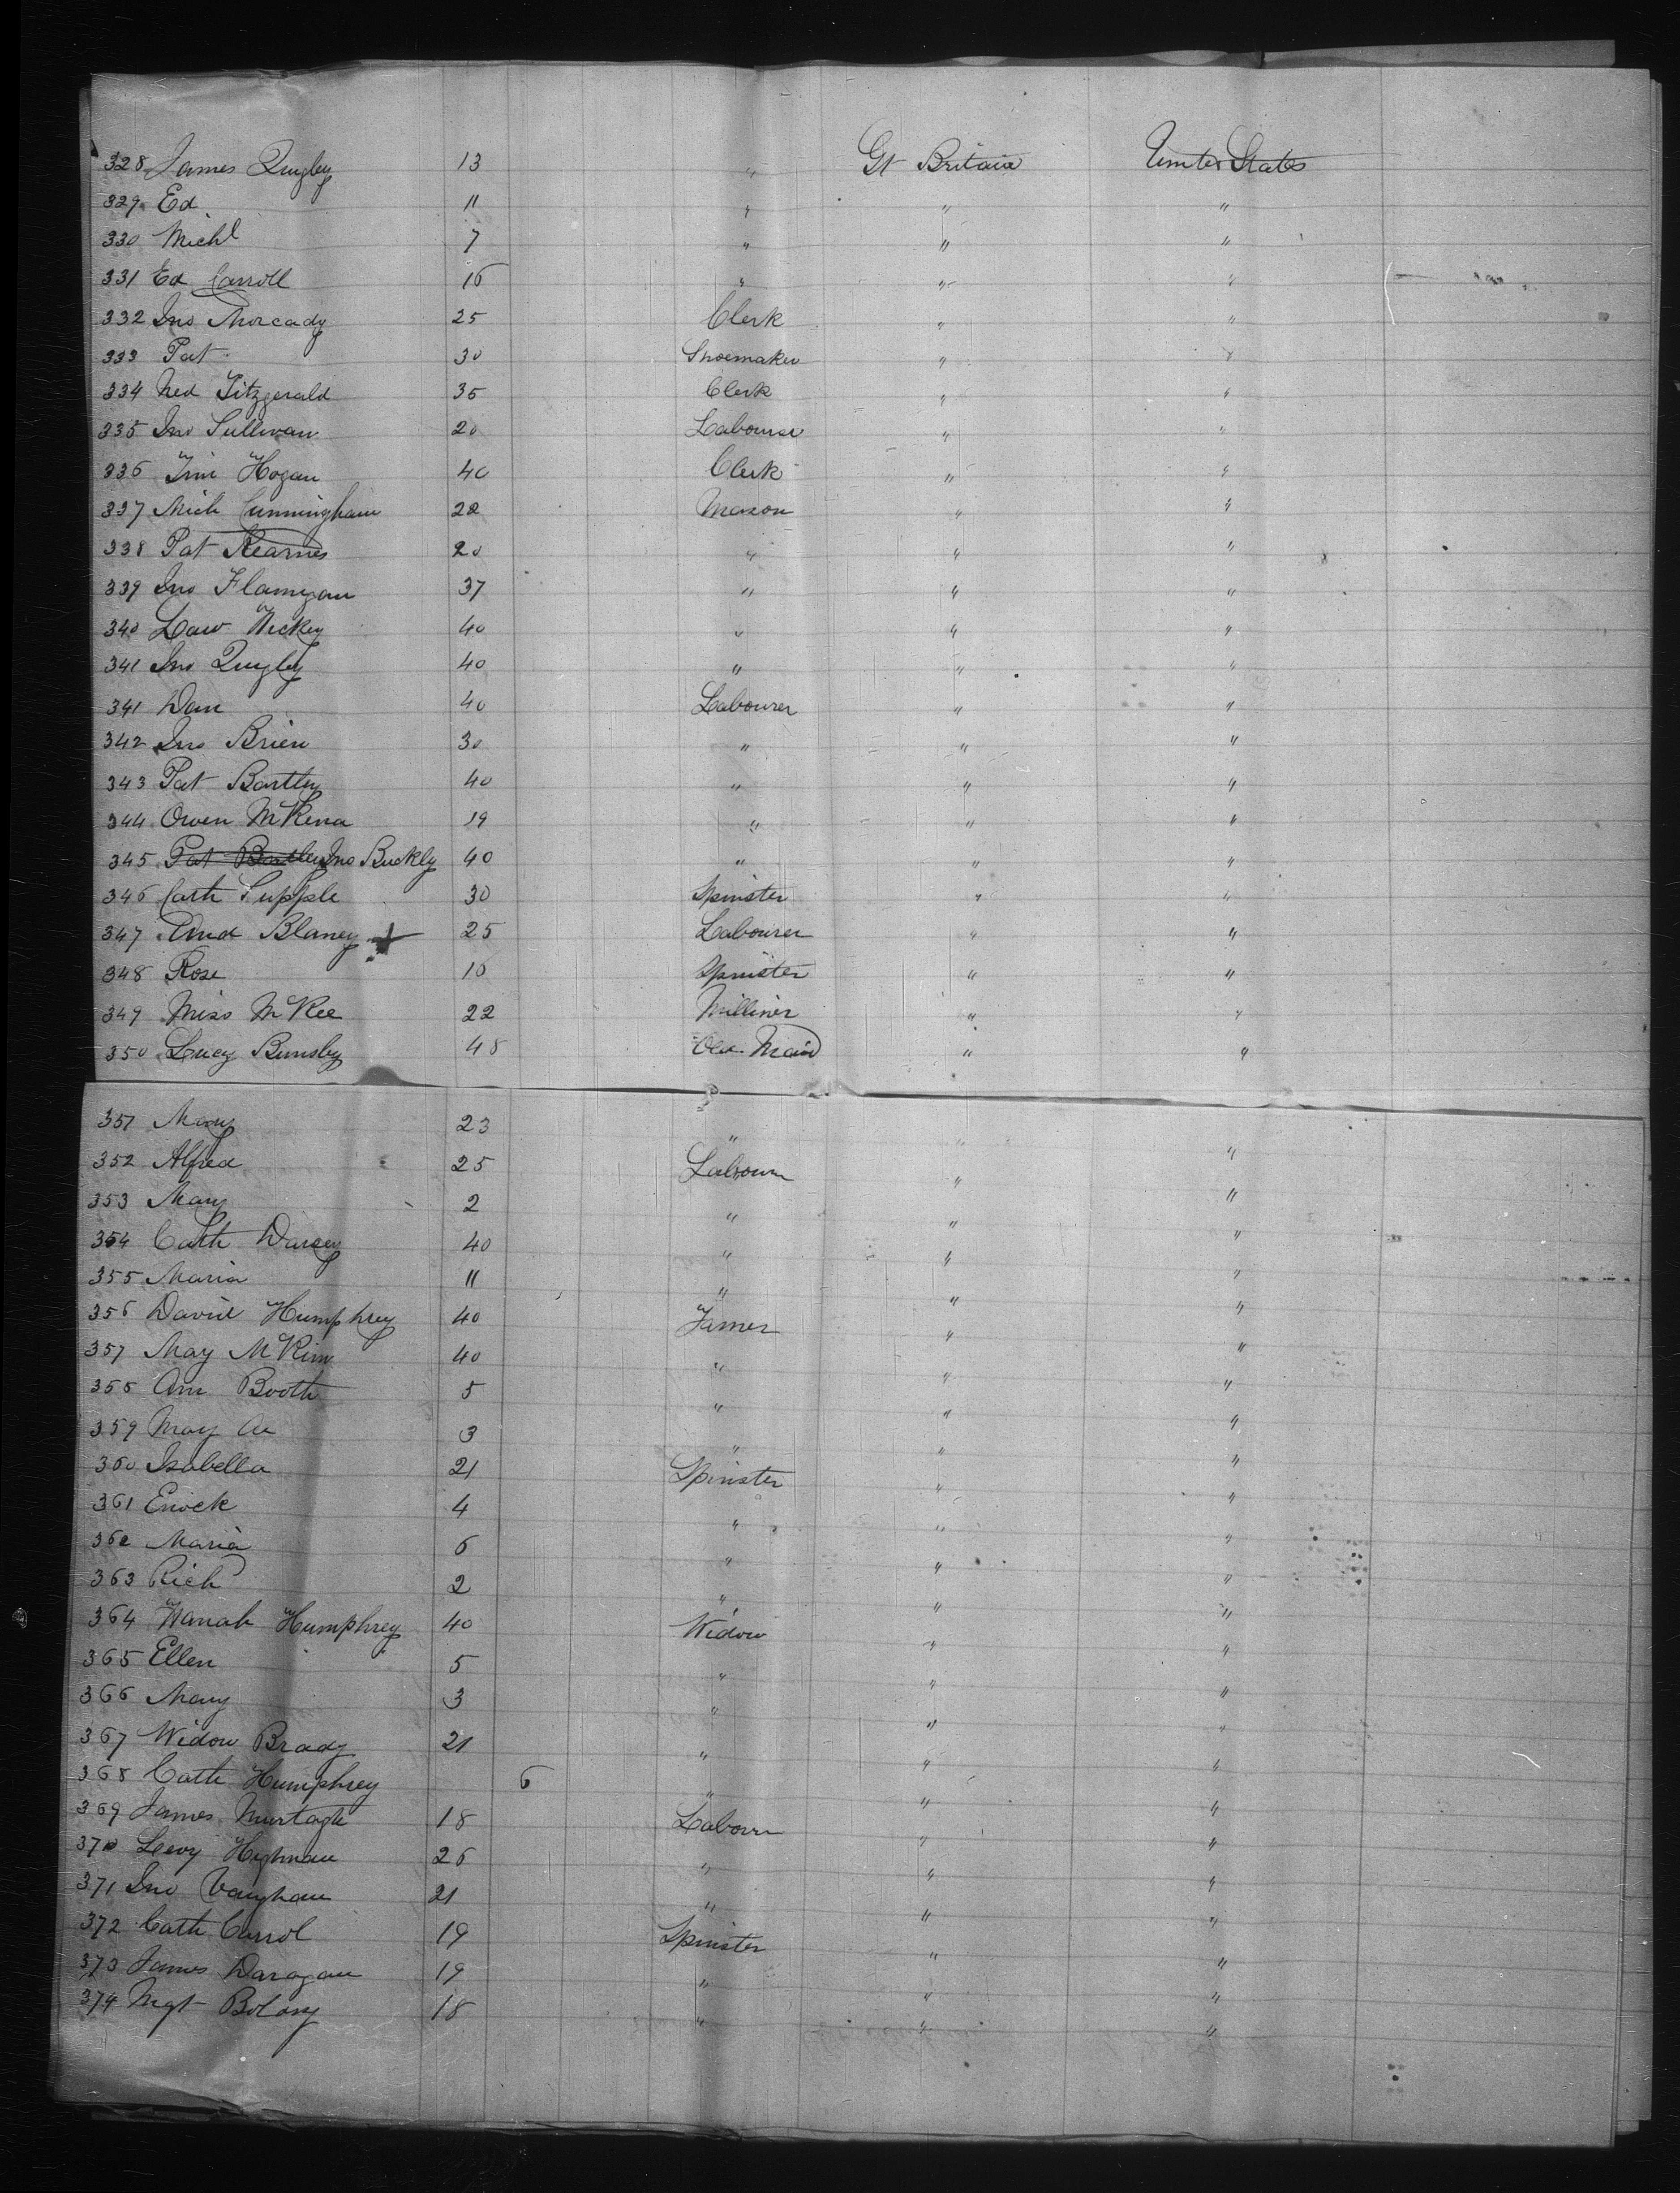 328 James Quigley 13 " Gt Britain United States
329 Ed 11 " " "
330 Michl 7 " " "
331 Ed Carroll 16 " " "
332 Jno 25 Clerk " "
333 Pat 30 Shoemaker " "
334 Ned Fitzgerald 35 Clerk " "
335 Jno Sullivan 20 Labourer " "
336 Tim Hogan 40 Clerk " "
337 Mich Cunningham 22 Mason " "
338 Pat Kearnes 20 " " "
339 Jno Flanngan 37 " " "
340 Law Hickey 40 " " "
341 Jno Quigley 40 " " "
341 Dan 40 Labourer " "
342 Jno Brien 30 " " "
343 Pat Bartley 40 " " "
344 Owen McKena 19 " " "
345 Pat Bartley Jno Buckly 40 " " "
346 Cath Supple 30 Spinster " "
347 Blaney + 25 Labourer " "
348 Rose 16 Spinster " "
349 Miss McKee 22 Milliner " "
350 Lucy Bunsby 48 Old Maid " "
351 Mary 23 " " "
352 Alfred 25 Labour " "
353 Mary 2 " " "
354 Cath Darcy 40 " " "
355 Maria 11 " " "
356 David Humphrey 40 Farmer " "
357 May McKim 40 " " "
358 Ann Booth 5 " " "
359 May An 3 " " "
360 Isabella 21 Spinster " "
361 Enock 4 " " "
362 Maria 6 " " "
363 Rich 2 " " "
364 Hanah Humphrey 40 Widow " "
365 Ellen 5 " " "
366 Mary 3 " " "
367 Widow Brady 21 " " "
368 Cath Humphrey 6 " " "
369 James Murtagh 18 Labour " "
370 Levy Highman 26 " " "
371 Jno Vaughan 21 " " "
372 Cath Carrol 19 Spinster " "
373 James Daragan 19 " " "
374 Mgt 18 " " "